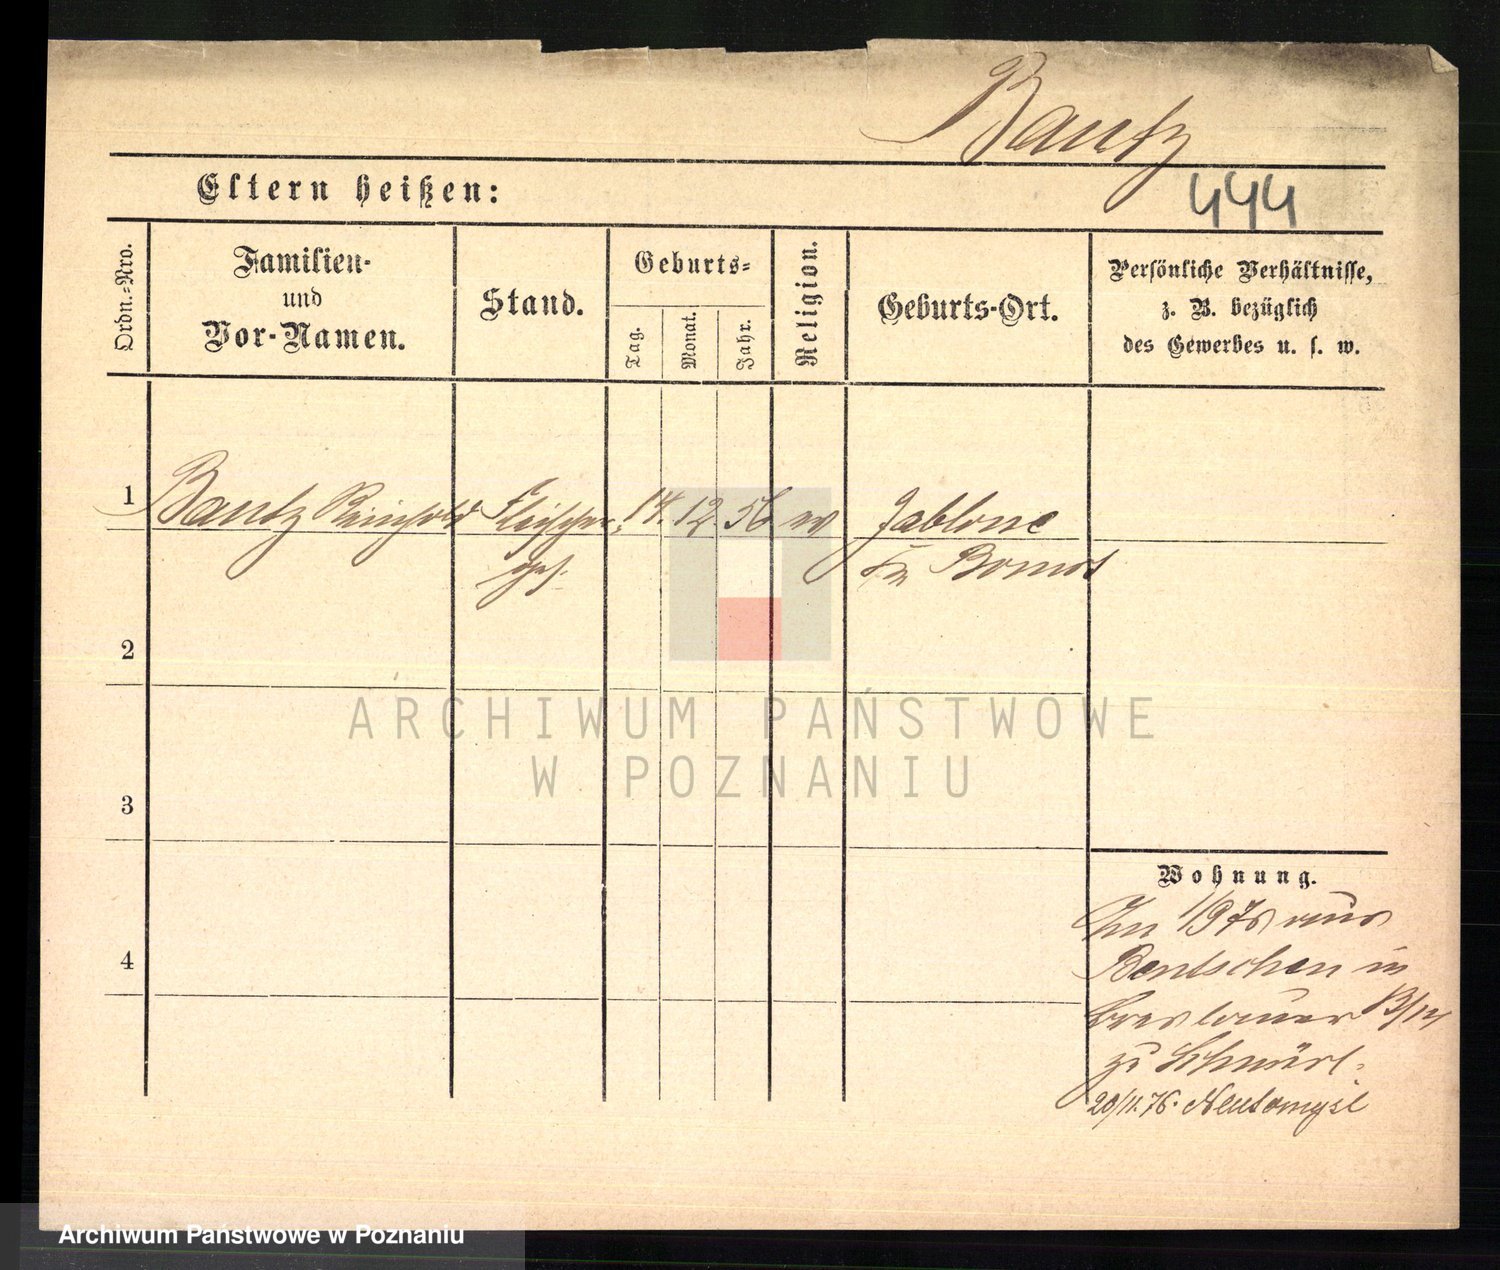 Bautz
444
Eltern heißen:
Ordn.-Nro.
Familien-
und
Vor-Namen.
Stand.
Geburts-
Tag.
Monat.
Jahr.
Religion.
Geburts-Ort.
Persönliche Verhältnisse,
z. B. bezüglich
des Gewerbes u. s. w.
1 Bautz Reinhold Fleischer 14. 12. 56 ev Jablone
ges. Kr Bomst
2
3
4
Wohnung.
1/9 76 aus
Bentschen in
Breslauer 13/14
zu
20/11. 76. Neutomysl
ARCHIWUM PAŃSTWOWE
W POZNANIU
Archiwum Państwowe w Poznaniu